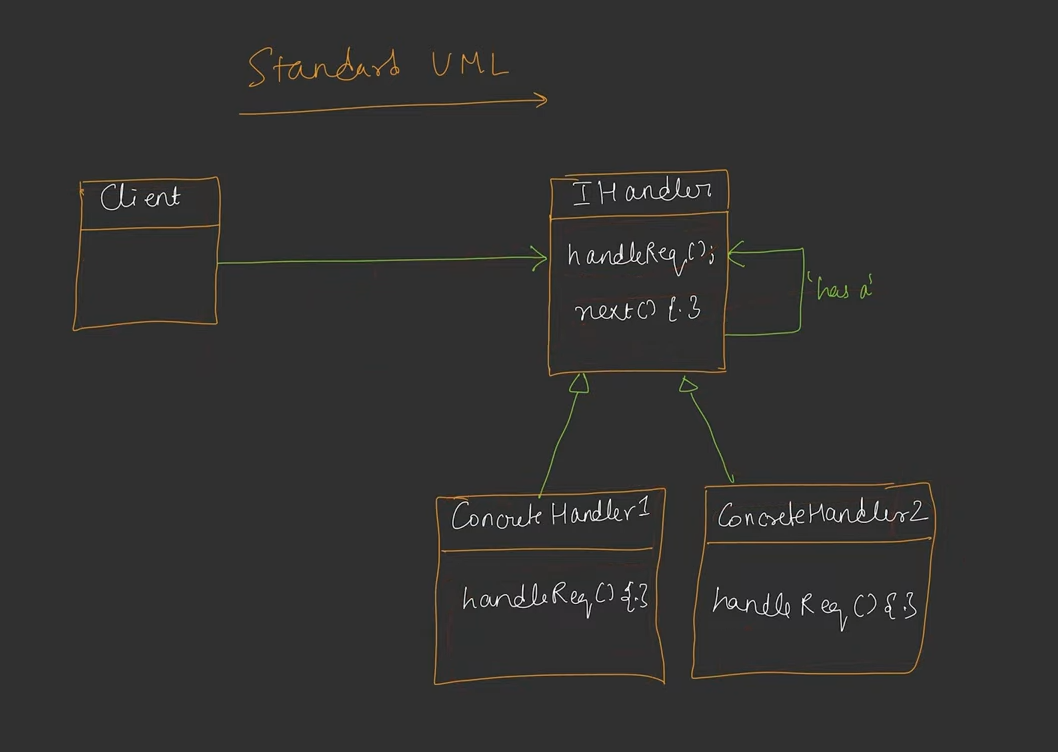 Standard UML
Client
IHandler
handleReq();
next() {.}
'has a'
ConcreteHandler1
handleReq() {.}
ConcreteHandler2
handleReq() {.}